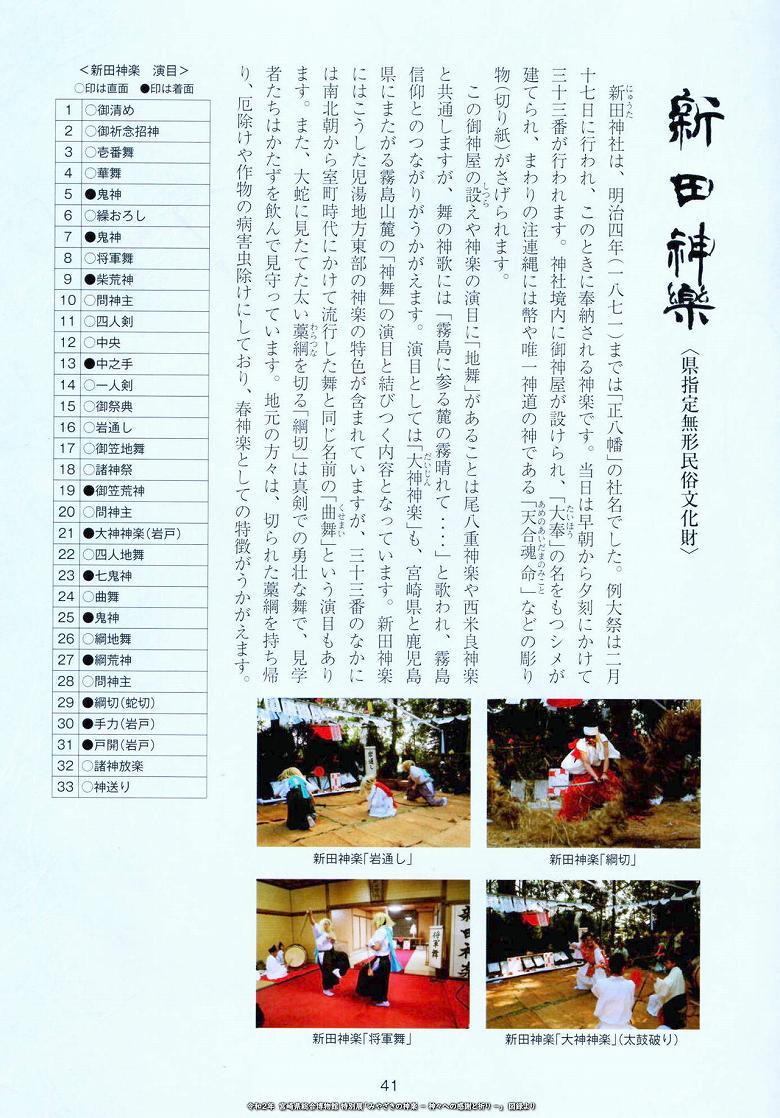 新田神樂
〈県指定無形民俗文化財〉
新田神社は、明治四年(一八七一)までは「正八幡」の社名でした。例大祭は二月
にゅうた
十七日に行われ、このときに奉納される神楽です。当日は早朝から夕刻にかけて
三十三番が行われます。神社境内に御神屋が設けられ、「大奉」の名をもつシメが
たいほう
建てられ、まわりの注連縄には幣や唯一神道の神である「天合魂命」などの彫り
あめのあいだまのみこと
物(切り紙)がさげられます。
この御神屋の設えや神楽の演目に「地舞」があることは尾八重神楽や西米良神楽
しつら
と共通しますが、舞の神歌には「霧島に参る麓の霧晴れて・・・・」と歌われ、霧島
信仰とのつながりがうかがえます。演目としては「大神神楽」も、宮崎県と鹿児島
だいじん
県にまたがる霧島山麓の「神舞」の演目と結びつく内容となっています。新田神楽
にはこうした児湯地方東部の神楽の特色が含まれていますが、三十三番のなかに
は南北朝から室町時代にかけて流行した舞と同じ名前の「曲舞」という演目もあり
くせまい
ます。また、大蛇に見たてた太い藁綱を切る「綱切」は真剣での勇壮な舞で、見学
わらつな
者たちはかたずを飲んで見守っています。地元の方々は、切られた藁綱を持ち帰
り、厄除けや作物の病害虫除けにしており、春神楽としての特徴がうかがえます。
＜新田神楽 演目＞
○印は直面 ●印は着面
1 ○御清め
2 ○御祈念招神
3 ○壱番舞
4 ○華舞
5 ●鬼神
6 ○繰おろし
7 ●鬼神
8 ○将軍舞
9 ●柴荒神
10 ○問神主
11 ○四人剣
12 ○中央
13 ●中之手
14 ○一人剣
15 ○御祭典
16 ○岩通し
17 ○御笠地舞
18 ○諸神祭
19 ●御笠荒神
20 ○問神主
21 ●大神神楽(岩戸)
22 ○四人地舞
23 ●七鬼神
24 ○曲舞
25 ●鬼神
26 ○綱地舞
27 ●綱荒神
28 ○問神主
29 ●綱切(蛇切)
30 ●手力(岩戸)
31 ●戸開(岩戸)
32 ○諸神放楽
33 ○神送り
岩通し
新田神楽「岩通し」
新田神楽「綱切」
将軍舞
新田神楽
新田神楽「将軍舞」
新田神楽「大神神楽」(太鼓破り)
41
令和2年 宮崎県総合博物館 特別展「みやざきの神楽 － 神々への感謝と祈り －」 図録より